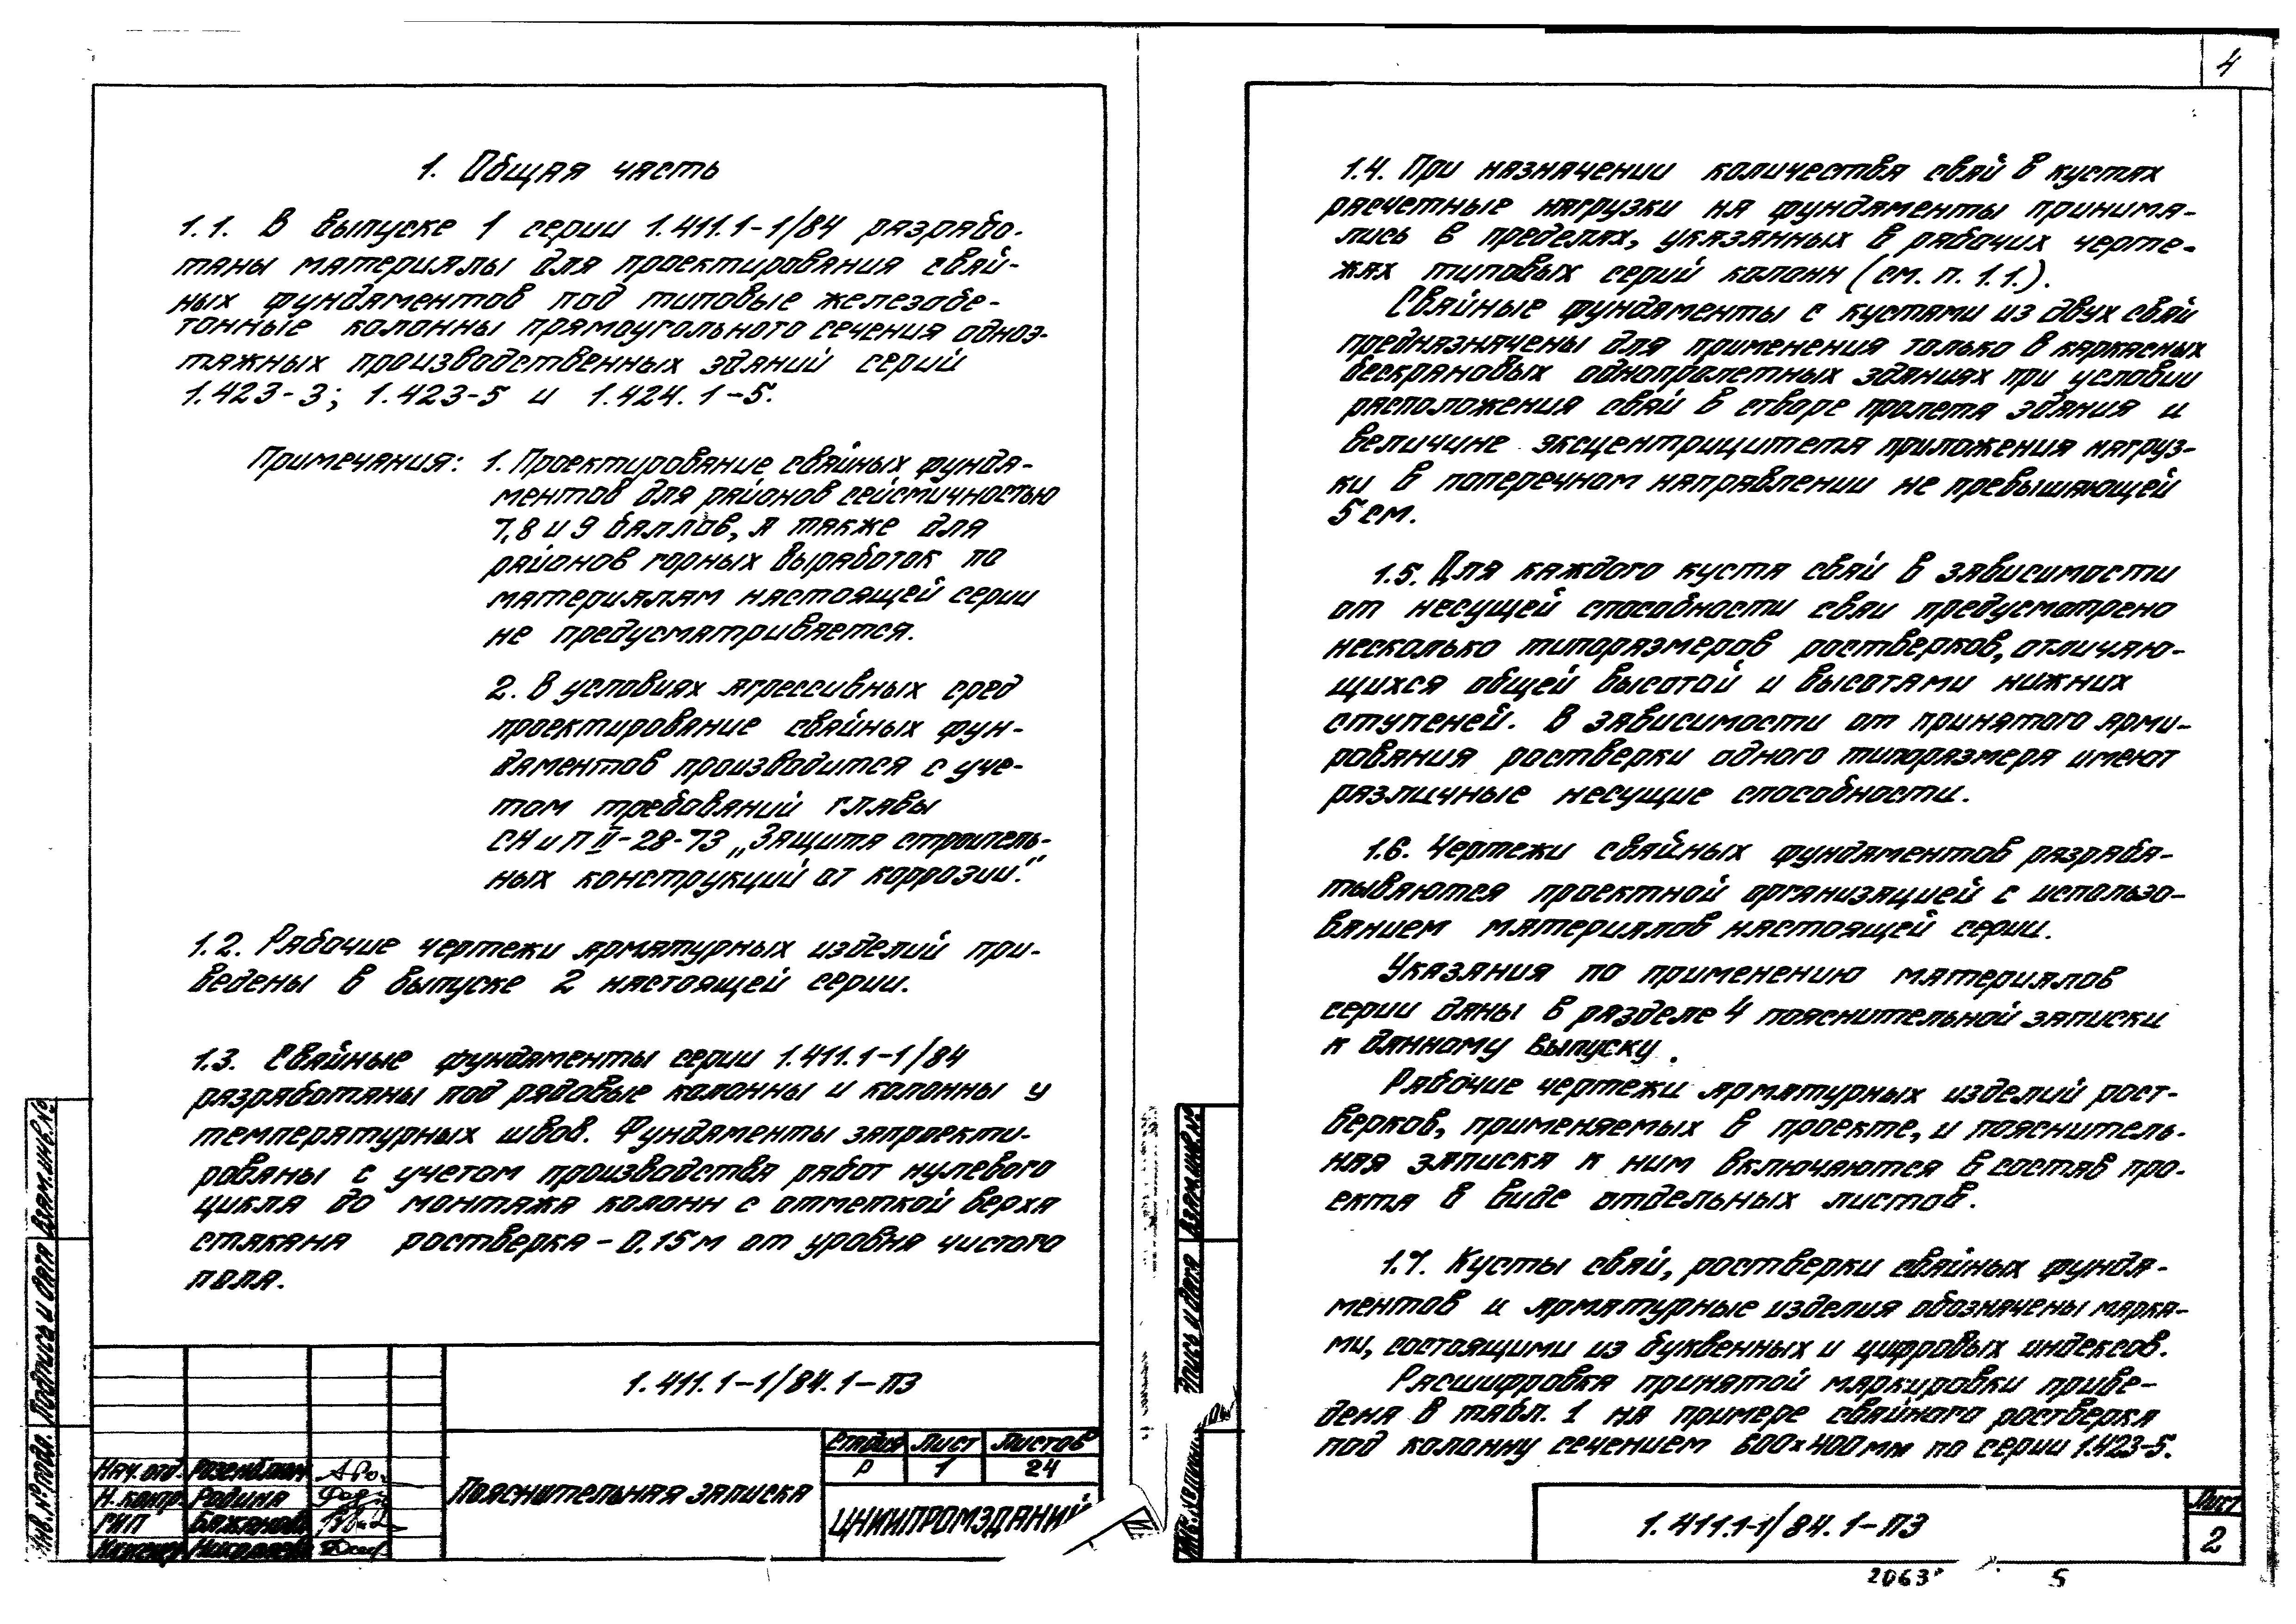 4
1. Общая часть
1.1. В выпуске 1 серии 1.411.1-1/84 разрабо-
таны материалы для проектирования свай-
ных фундаментов под типовые железобе-
тонные колонны прямоугольного сечения одноэ-
тажных производственных зданий серий
1.423-3; 1.423-5 и 1.424.1-5.
Примечания: 1. Проектирование свайных фунда-
ментов для районов сейсмичностью
7,8 и 9 баллов, а также для
районов горных выработок по
материалам настоящей серии
не предусматривается.
2. В условиях агрессивных сред
проектирование свайных фун-
даментов производится с уче-
том требований главы
СНиП II-28-73 „Защита строитель-
ных конструкций от коррозии."
1.2. Рабочие чертежи арматурных изделий при-
ведены в выпуске 2 настоящей серии.
1.3. Свайные фундаменты серии 1.411.1-1/84
разработаны под рядовые колонны и колонны у
температурных швов. Фундаменты запроекти-
рованы с учетом производства работ нулевого
цикла до монтажа колонн с отметкой верха
стакана ростверка - 0.15 м от уровня чистого
пола.
1.411.1-1/84.1-ПЗ
Нач. отд. Розенблюм
Н. контр. Родина
ГИП Бажанова
Инженер Николаева
Пояснительная записка
Стадия Лист Листов
Р 1 24
ЦНИИПРОМЗДАНИЙ
Инв.№ подл. Подпись и дата Взам.инв.№
1.4. При назначении количества свай в кустах
расчетные нагрузки на фундаменты принима-
лись в пределах, указанных в рабочих черте-
жах типовых серий колонн (см. п. 1.1.).
Свайные фундаменты с кустами из двух свай
предназначены для применения только в каркасных
бескрановых однопролетных зданиях при условии
расположения свай в створе пролета здания и
величине эксцентрицитета приложения нагруз-
ки в поперечном направлении не превышающей
5 см.
1.5. Для каждого куста свай в зависимости
от несущей способности сваи предусмотрено
несколько типоразмеров ростверков, отличаю-
щихся общей высотой и высотами нижних
ступеней. В зависимости от принятого арми-
рования ростверки одного типоразмера имеют
различные несущие способности.
1.6. Чертежи свайных фундаментов разраба-
тываются проектной организацией с использо-
ванием материалов настоящей серии.
Указания по применению материалов
серии даны в разделе 4 пояснительной записки
к данному выпуску.
Рабочие чертежи арматурных изделий рост-
верков, применяемых в проекте, и пояснитель-
ная записка к ним включаются в состав про-
екта в виде отдельных листов.
1.7. Кусты свай, ростверки свайных фунда-
ментов и арматурные изделия обозначены марка-
ми, состоящими из буквенных и цифровых индексов.
Расшифровка принятой маркировки приве-
дена в табл. 1 на примере свайного ростверка
под колонну сечением 600×400 мм по серии 1.423-5.
1.411.1-1/84.1-ПЗ
Лист
2
Взам.инв.№
2063
5